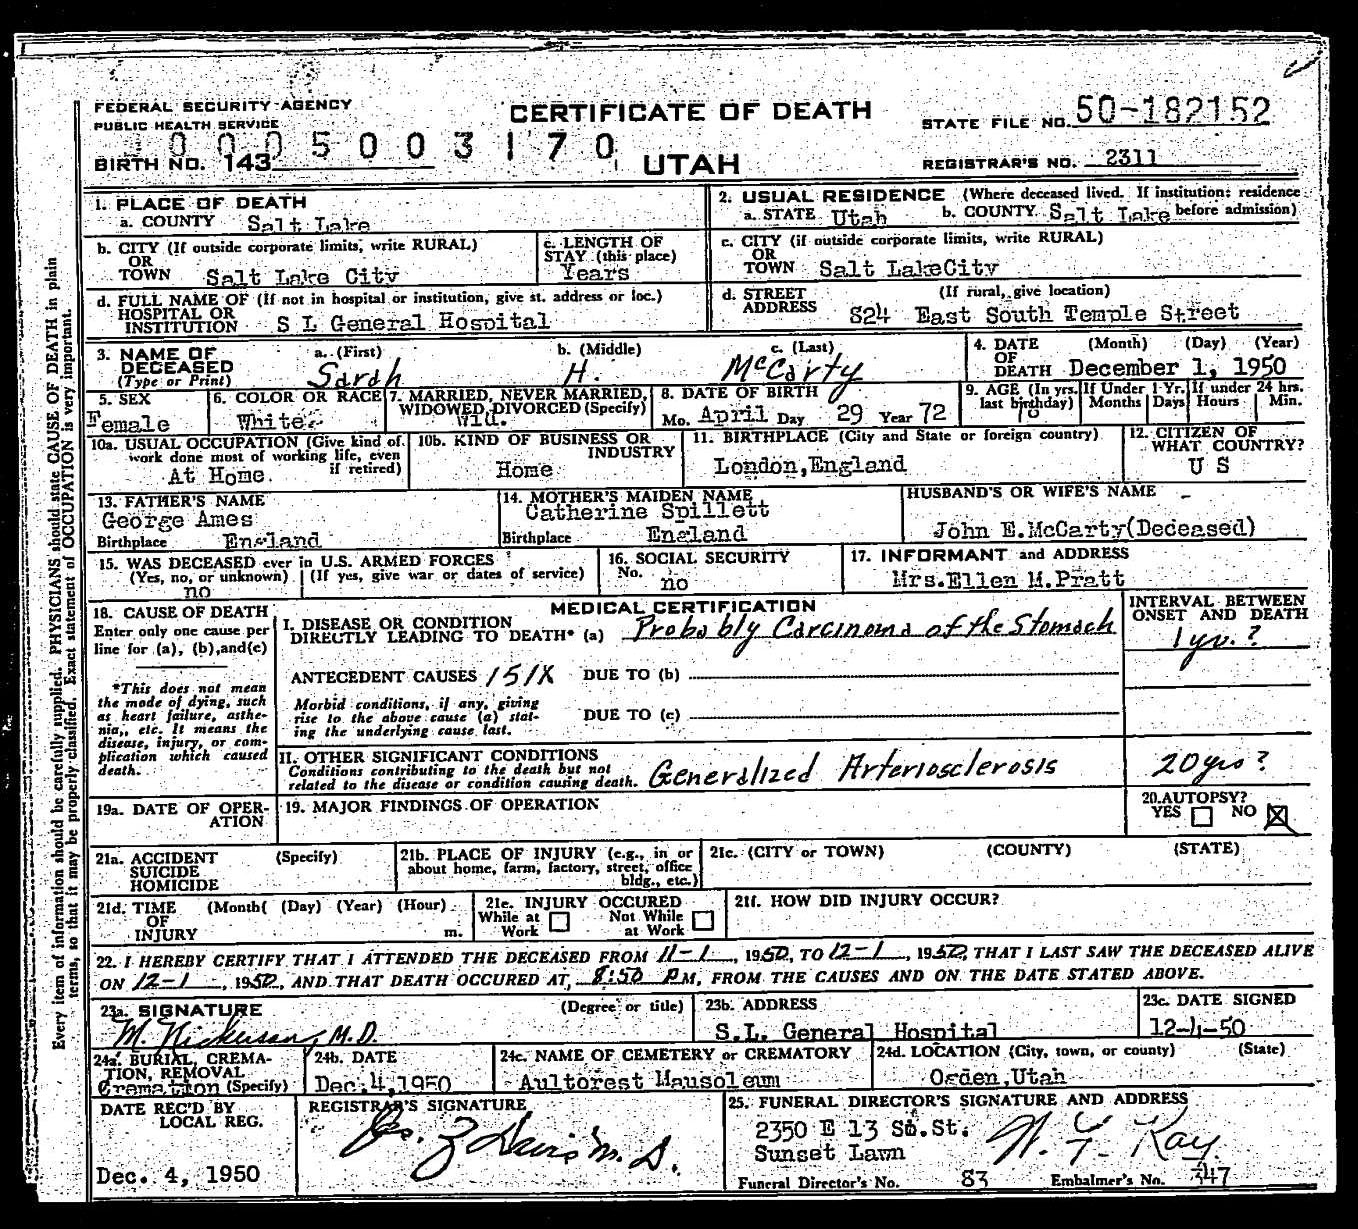 FEDERAL SECURITY AGENCY
PUBLIC HEALTH SERVICE
CERTIFICATE OF DEATH
STATE FILE NO. 50-182152
0005003170
BIRTH NO. 143
UTAH
REGISTRAR'S NO. 2311
1. PLACE OF DEATH
a. COUNTY Salt Lake
2. USUAL RESIDENCE (Where deceased lived. If institution: residence before admission)
a. STATE Utah b. COUNTY Salt Lake
b. CITY (If outside corporate limits, write RURAL)
OR
TOWN Salt Lake City
c. LENGTH OF
STAY (this place)
Years
c. CITY (if outside corporate limits, write RURAL)
OR
TOWN Salt LakeCity
d. FULL NAME OF (If not in hospital or institution, give st. address or loc.)
HOSPITAL OR
INSTITUTION S L General Hospital
d. STREET (If rural, give location)
ADDRESS 824 East South Temple Street
3. NAME OF a. (First) b. (Middle) c. (Last)
DECEASED
(Type or Print) Sarah H. McCarty
4. DATE (Month) (Day) (Year)
OF
DEATH December 1, 1950
5. SEX
Female
6. COLOR OR RACE
White
7. MARRIED, NEVER MARRIED,
WIDOWED, DIVORCED (Specify)
Wid.
8. DATE OF BIRTH
Mo. April Day 29 Year 72
9. AGE (In yrs. last birthday)
If Under 1 Yr. Months Days
If under 24 hrs. Hours Min.
10a. USUAL OCCUPATION (Give kind of
work done most of working life, even
if retired)
At Home
10b. KIND OF BUSINESS OR
INDUSTRY
Home
11. BIRTHPLACE (City and State or foreign country)
London,England
12. CITIZEN OF
WHAT COUNTRY?
U S
13. FATHER'S NAME
George Ames
Birthplace England
14. MOTHER'S MAIDEN NAME
Catherine Spillett
Birthplace England
HUSBAND'S OR WIFE'S NAME
John E.McCarty(Deceased)
15. WAS DECEASED ever in U.S. ARMED FORCES
(Yes, no, or unknown) (If yes, give war or dates of service)
no
16. SOCIAL SECURITY
No. no
17. INFORMANT and ADDRESS
Mrs.Ellen M.Pratt
18. CAUSE OF DEATH
Enter only one cause per
line for (a), (b),and(c)
*This does not mean
the mode of dying, such
as heart failure, asthe-
nia,, etc. It means the
disease, injury, or com-
plication which caused
death.
MEDICAL CERTIFICATION
I. DISEASE OR CONDITION
DIRECTLY LEADING TO DEATH* (a) Probably Carcinoma of the Stomach
INTERVAL BETWEEN
ONSET AND DEATH
1 yr. ?
ANTECEDENT CAUSES 151X DUE TO (b)
Morbid conditions, if any, giving
rise to the above cause (a) stat-
ing the underlying cause last.
DUE TO (c)
II. OTHER SIGNIFICANT CONDITIONS
Conditions contributing to the death but not
related to the disease or condition causing death.
Generalized Arteriosclerosis
20 yrs ?
19a. DATE OF OPER-
ATION
19. MAJOR FINDINGS OF OPERATION
20. AUTOPSY?
YES NO
21a. ACCIDENT (Specify)
SUICIDE
HOMICIDE
21b. PLACE OF INJURY (e.g., in or
about home, farm, factory, street, office
bldg., etc.)
21c. (CITY or TOWN) (COUNTY) (STATE)
21d. TIME (Month( (Day) (Year) (Hour)
OF
INJURY m.
21e. INJURY OCCURED
While at Work
Not While at Work
21f. HOW DID INJURY OCCUR?
22. I HEREBY CERTIFY THAT I ATTENDED THE DECEASED FROM 11-1, 1950, TO 12-1, 1950, THAT I LAST SAW THE DECEASED ALIVE
ON 12-1, 1950, AND THAT DEATH OCCURED AT, 8:50 PM, FROM THE CAUSES AND ON THE DATE STATED ABOVE.
23a. SIGNATURE (Degree or title)
M. Nickerson, M.D.
23b. ADDRESS
S.L. General Hospital
23c. DATE SIGNED
12-4-50
24a. BURIAL, CREMA-
TION, REMOVAL
Cremation (Specify)
24b. DATE
Dec.4,1950
24c. NAME OF CEMETERY or CREMATORY
Aultorest Mausoleum
24d. LOCATION (City, town, or county) (State)
Ogden,Utah
DATE REC'D BY
LOCAL REG.
Dec. 4, 1950
REGISTRAR'S SIGNATURE
25. FUNERAL DIRECTOR'S SIGNATURE AND ADDRESS
2350 E 13 So.St.
Sunset Lawn
Funeral Director's No. 83 Embalmer's No. 347
Every item of information should be carefully supplied. PHYSICIANS should state CAUSE OF DEATH in plain
terms, so that it may be properly classified. Exact statement of OCCUPATION is very important.